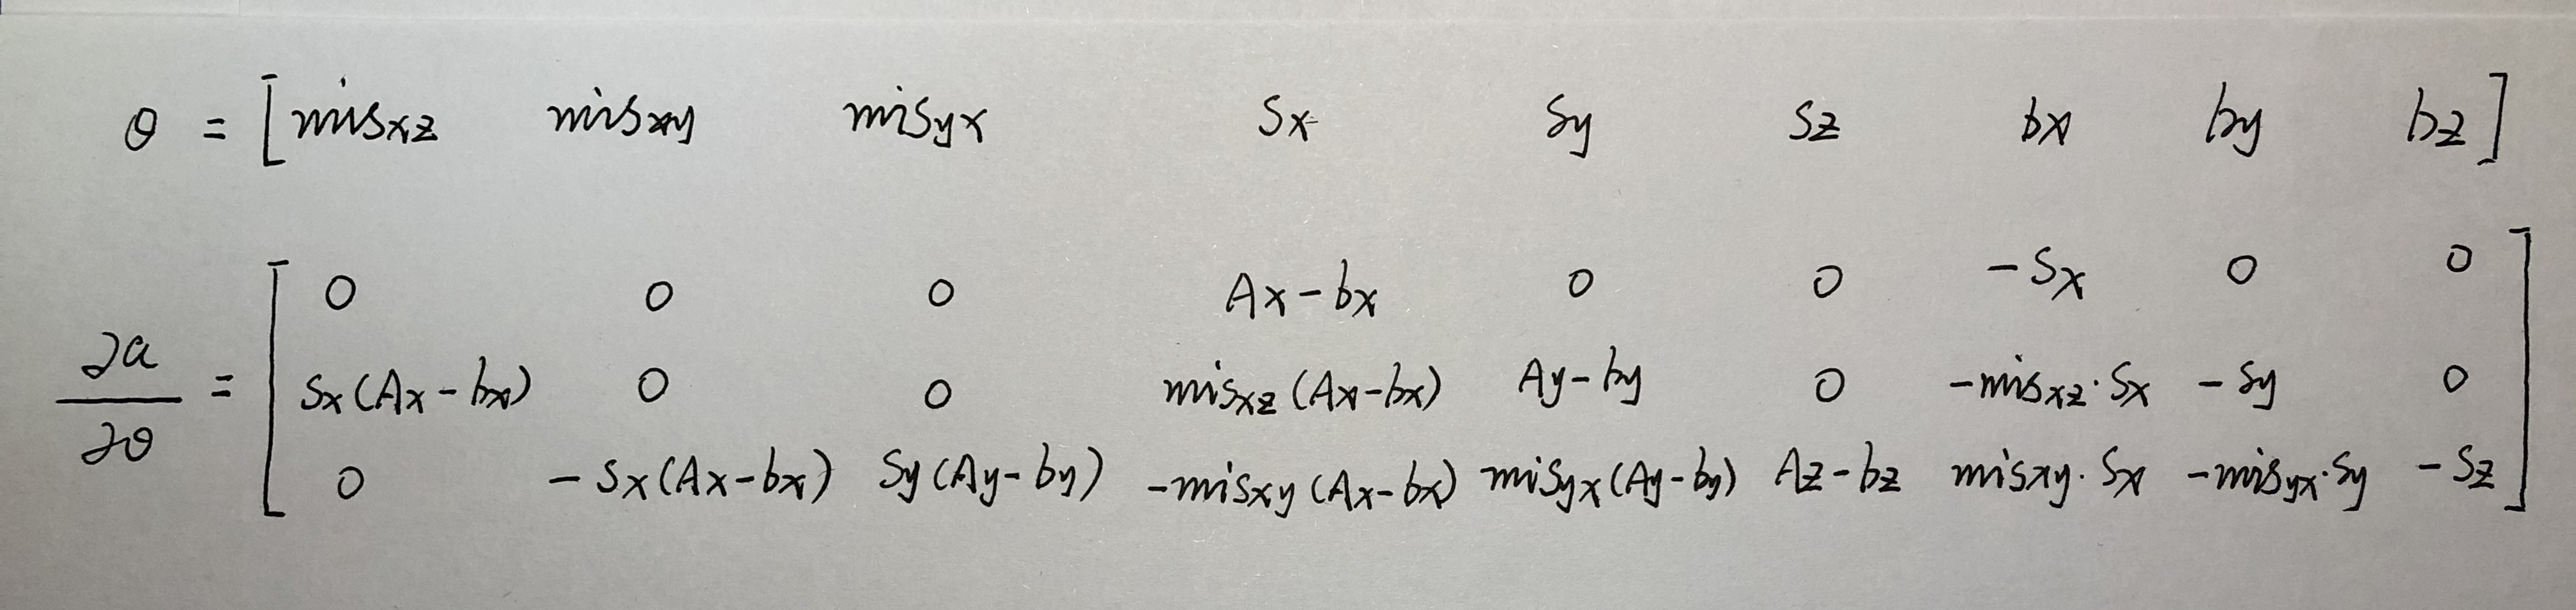 θ = [ mis_xz mis_xy mis_yx Sx Sy Sz bx by bz ]
0 0 0 Ax-bx 0 0 -Sx 0 0
∂a/∂θ = [ Sx(Ax-bx) 0 0 mis_xz(Ax-bx) Ay-by 0 -mis_xz·Sx -Sy 0 ]
0 -Sx(Ax-bx) Sy(Ay-by) -mis_xy(Ax-bx) mis_yx(Ay-by) Az-bz mis_xy·Sx -mis_yx·Sy -Sz